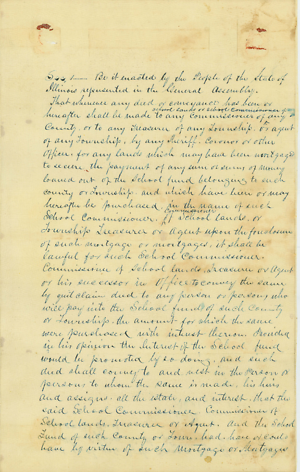 Be it enacted by the People of the State of
Illinois represented in the General Assembly.
That whenever any deed or conveyance has been or
school lands or School Commissioner
hereafter shall be made to any Commissioner of any
County, or to any Treasurer of any Township, or agent
of any Township, by any Sheriff, Coroner or other
Officer for any lands which may have been mortgaged
to secure the payment of any sum or sums of money
loaned out of the School fund belonging to such
county or Township. and which have been or may
hereafter be purchased in the name of such
Commissioner
School Commissioner, of school lands, or
Township Treasurer or Agent upon the foreclosure
of such mortgage or mortgages, it shall be
lawful for such School Commissioner
Commissioner of School lands, Treasurer or Agent
or his successor in Office to convey the same
by quit claim deed to any person or persons who
will pay into the School fund of such County
or Township the amount for which the same
were purchased with interest thereon Provided
in his opinion the Interest of the School fund
would be promoted by so doing, and such
deed shall convey to and vest in the person or
persons to whom the same is made, his heirs
and assigns all the estate, and interest that the
said School Commissioner, Commissioner of
School lands, Treasurer or Agent. And the School
fund of such County or Town had have or could
have by virtue of such Mortgage or Mortgages